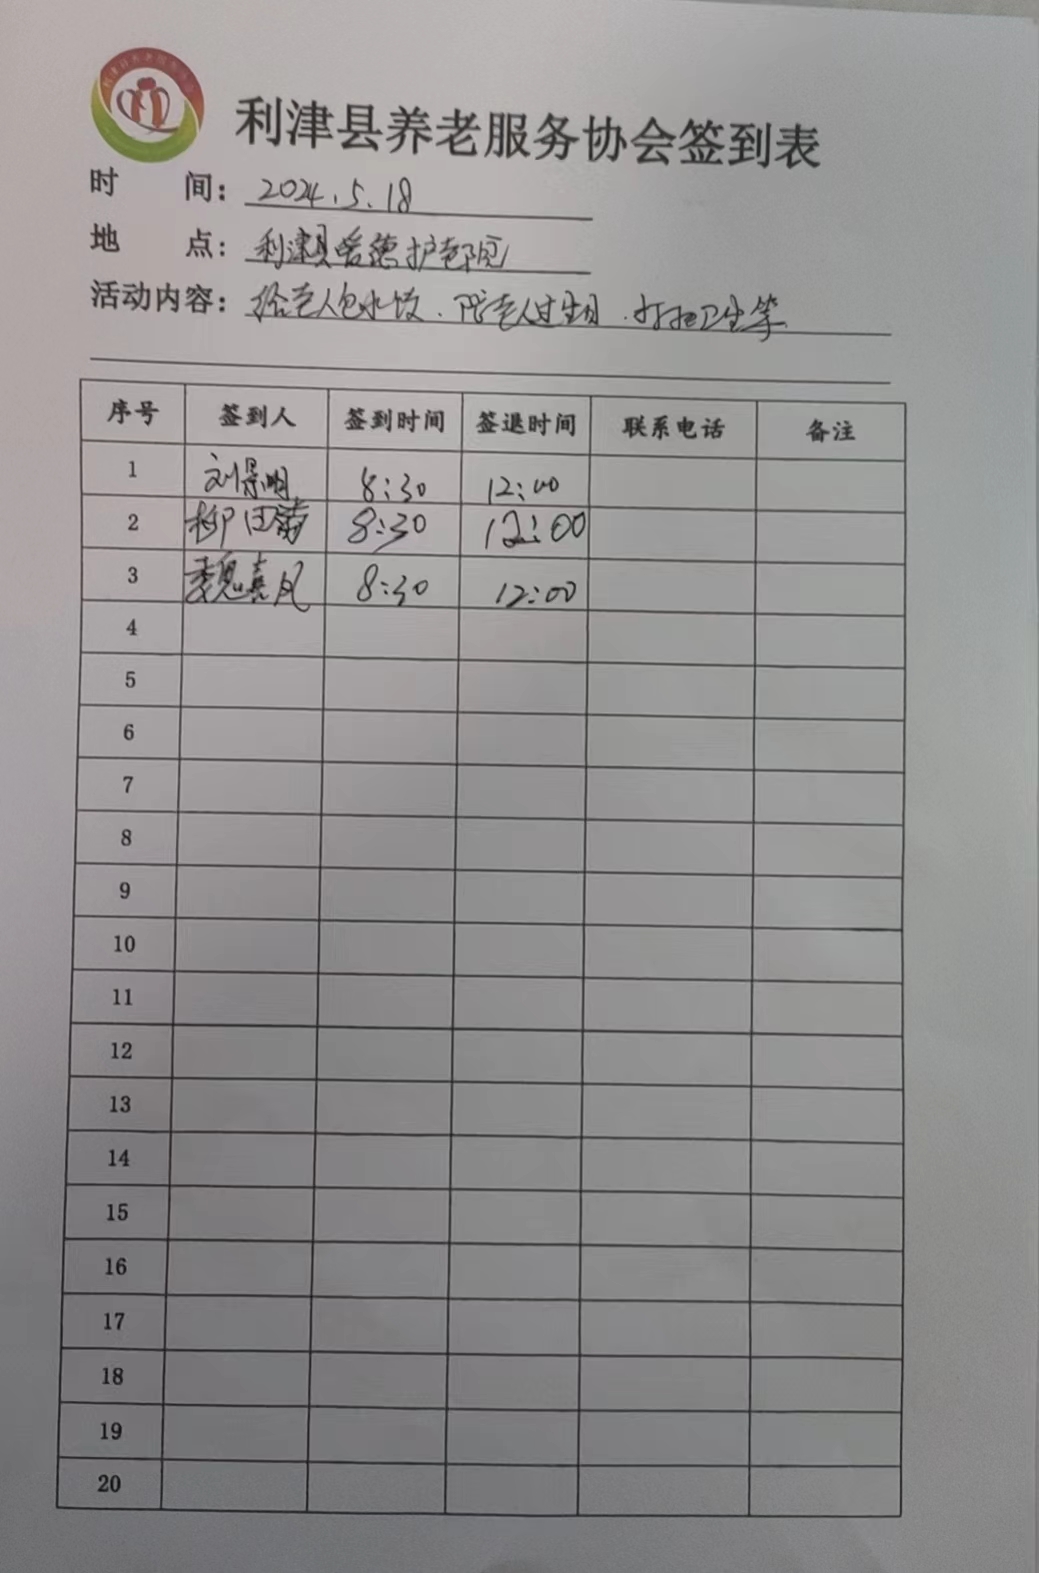 利津县养老服务协会签到表
时 间: 2024.5.18
地 点: 利津县喜德护老院
活动内容: 给老人包水饺、陪老人过生日、打扫卫生等
序号 签到人 签到时间 签退时间 联系电话 备注
1 刘景明 8:30 12:00
2 柳田 8:30 12:00
3 魏喜凤 8:30 12:00
4
5
6
7
8
9
10
11
12
13
14
15
16
17
18
19
20